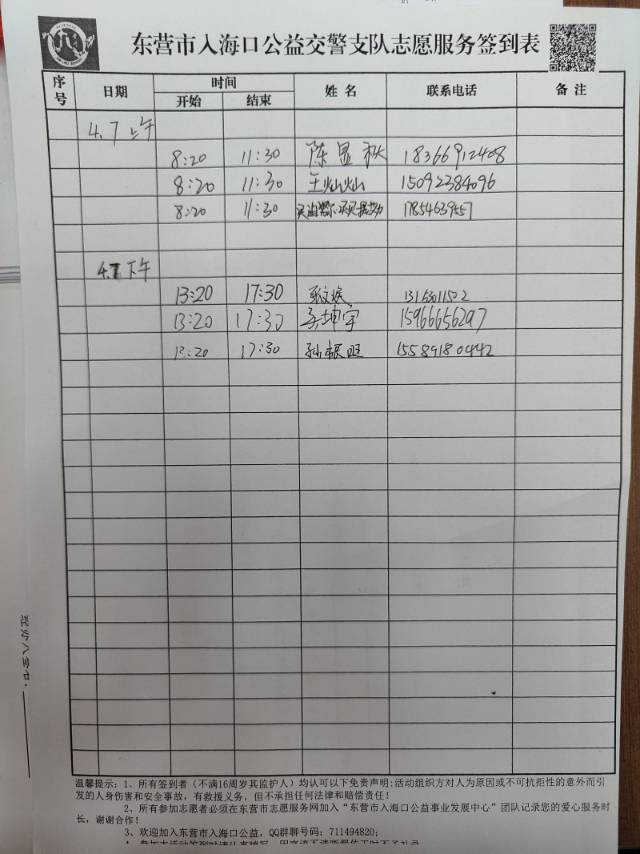 东营市入海口公益交警支队志愿服务签到表
序号 日期 时间 姓名 联系电话 备注
开始 结束
4.7 上午
8:20 11:30 陈显秋 18366912408
8:20 11:30 王灿灿 15092384096
8:20 11:30 17854639557
4.7 下午
13:20 17:30 13163011502
13:20 17:30 吴坤宇 15966656297
13:20 17:30 孙振旺 15589180442
温馨提示:1、所有签到者(不满16周岁其监护人)均认可以下免责声明:活动组织方对人为原因或不可抗拒性的意外而引
发的人身伤害和安全事故,有救援义务,但不承担任何法律和赔偿责任!
2、所有参加志愿者必须在东营市志愿服务网加入“东营市入海口公益事业发展中心”团队记录您的爱心服务时
长,谢谢合作!
3、欢迎加入东营市入海口公益,QQ群聊号码:711494820;